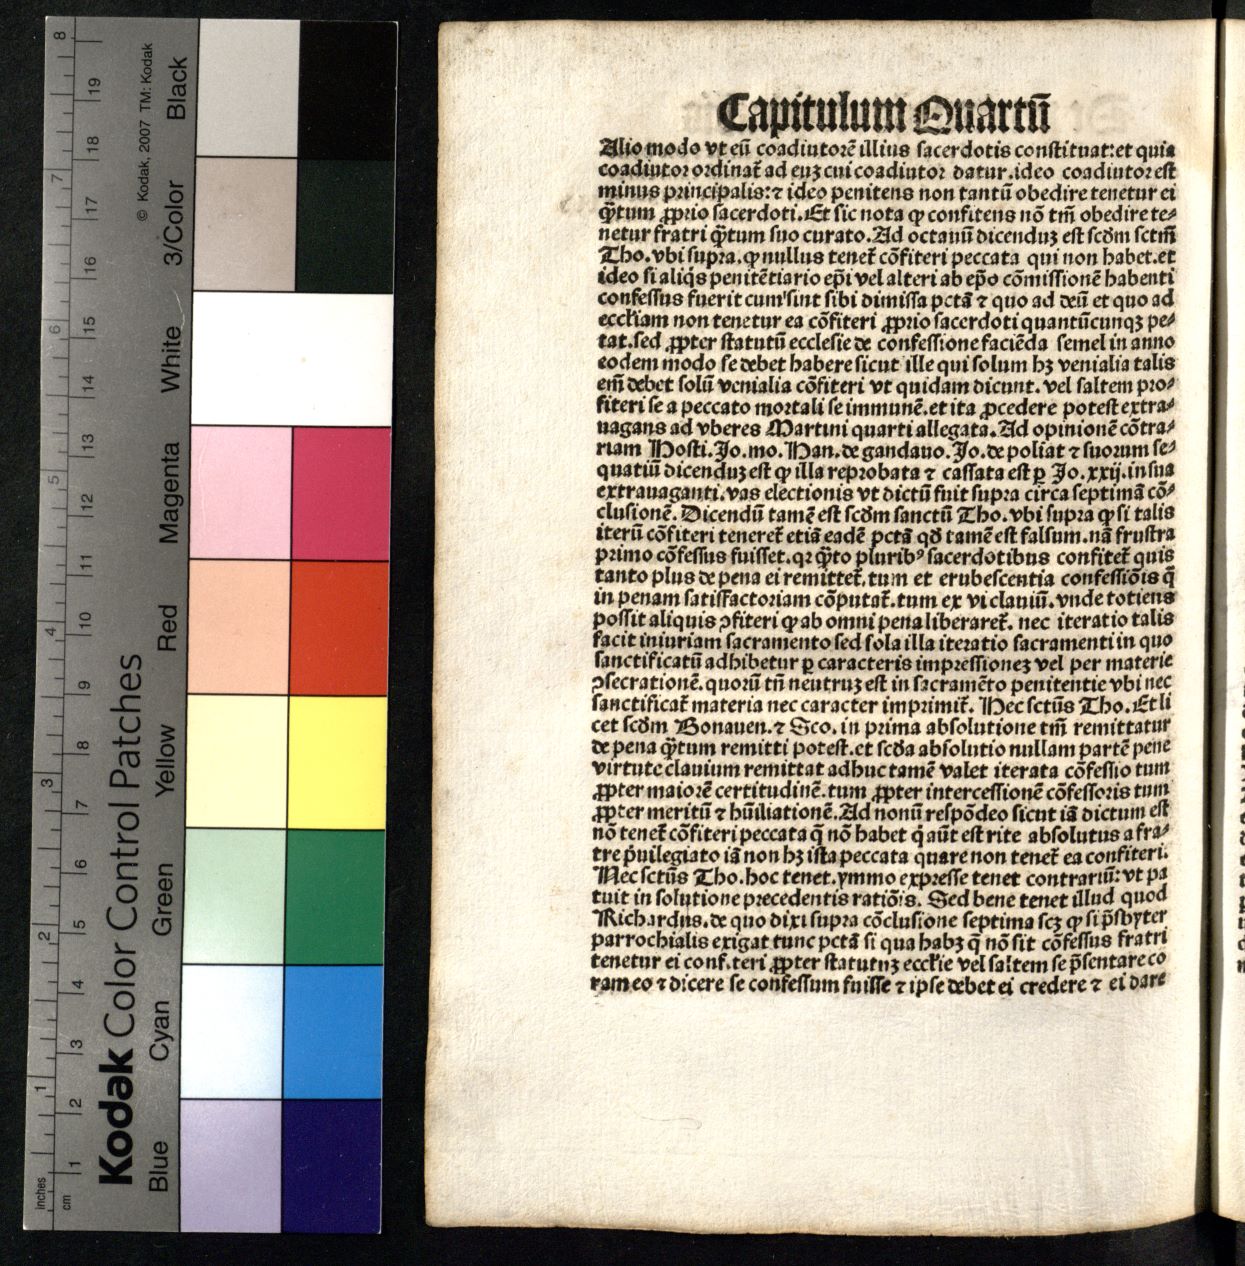 Capitulum Quartū
Alio modo vt eū coadiutorē illius sacerdotis constituat:et quia
coadiutor ordinat̄ ad euꝫ cui coadiutor datur.ideo coadiutor est
minus principalis:⁊ ideo penitens non tantū obedire tenetur ei
qȝ̄tum ꝓprio sacerdoti.Et sic nota ꝙ confitens nō tm̄ obedire te⸗
netur fratri q̄tum suo curato.Ad octauū dicenduꝫ est scd̄m sctm̄
Tho.vbi supra.ꝙ nullus tenet̄ cōfiteri peccata qui non habet.et
ideo si aliq̇s penitētiario ep̄i vel alteri ab ep̄o cōmissionē habenti
confessus fuerit cum sint sibi dimissa pctā ⁊ quo ad deū et quo ad
eccƚiam non tenetur ea cōfiteri ꝓprio sacerdoti quantūcunqꝫ pe⸗
tat.sed ꝓpter statutū ecclesie de confessione faciēda semel in anno
eodem modo se debet habere sicut ille qui solum hꝫ venialia talis
em̄ debet solū venialia cōfiteri vt quidam dicunt.vel saltem pro⸗
fiteri se a peccato mortali se immunē.et ita ꝓcedere potest extra⸗
uagans ad vberes Martini quarti allegata.Ad opinionē cōtra⸗
riam Hosti.Jo.mo.Han.de gandauo.Jo.de poliat ⁊ suorum se⸗
quatiū dicenduꝫ est ꝙ illa reprobata ⁊ cassata est ꝑ Jo.xxij.in sua
extrauaganti.vas electionis vt dictū fuit supra circa septimā cō⸗
clusionē.Dicendū tamē est scd̄m sanctū Tho.vbi supra ꝙ si talis
iterū cōfiteri teneret̄ etiā eadē pctā qd̄ tamē est falsum.nā frustra
primo cōfessus fuisset.qꝛ q̄to pluribꝰ sacerdotibus confitet̄ quis
tanto plus de pena ei remittet̄.tum et erubescentia confessiōis q̄
in penam satisfactoriam cōputat̄.tum ex vi clauiū.vnde totiens
possit aliquis ↄfiteri ꝙ ab omni pena liberaret̄. nec iteratio talis
facit iniuriam sacramento sed sola illa iteratio sacramenti in quo
sanctificatū adhibetur ꝑ caracteris impressioneꝫ vel per materie
ↄsecrationē.quorū tn̄ neutruꝫ est in sacramēto penitentie vbi nec
sanctificat̄ materia nec caracter imprimit̄. Hec sctūs Tho.Et li
cet scd̄m Bonauen.⁊ Sco. in prima absolutione tm̄ remittatur
de pena q̄tum remitti potest.et scd̄a absolutio nullam partē pene
virtute clauium remittat adhuc tamē valet iterata cōfessio tum
ꝓpter maiorē certitudinē.tum ꝓpter intercessionē cōfessoris tum
ꝓpter meritū ⁊ hūiliationē.Ad nonū respōdeo sicut iā dictum est
nō tenet̄ cōfiteri peccata q̄ nō habet q̇ aūt est rite absolutus a fra⸗
tre p̄uilegiato iā non hꝫ ista peccata quare non tenet̄ ea confiteri.
Nec sctūs Tho.hoc tenet.ymmo expresse tenet contrariū:vt pa
tuit in solutione precedentis ratiōis. Sed bene tenet illud quod
Richardus.de quo dixi supra cōclusione septima scꝫ ꝙ si p̄sbyter
parrochialis exigat tunc pctā si qua habꝫ q̄ nō sit cōfessus fratri
tenetur ei confiteri ꝓpter statutuꝫ eccƚie vel saltem se p̄sentare co
ram eo ⁊ dicere se confessum fuisse ⁊ ipse debet ei credere ⁊ ei dare
Kodak Color Control Patches
© Kodak, 2007 TM: Kodak
Blue Cyan Green Yellow Red Magenta White 3/Color Black
inches 1 2 3 4 5 6 7 8
cm 1 2 3 4 5 6 7 8 9 10 11 12 13 14 15 16 17 18 19